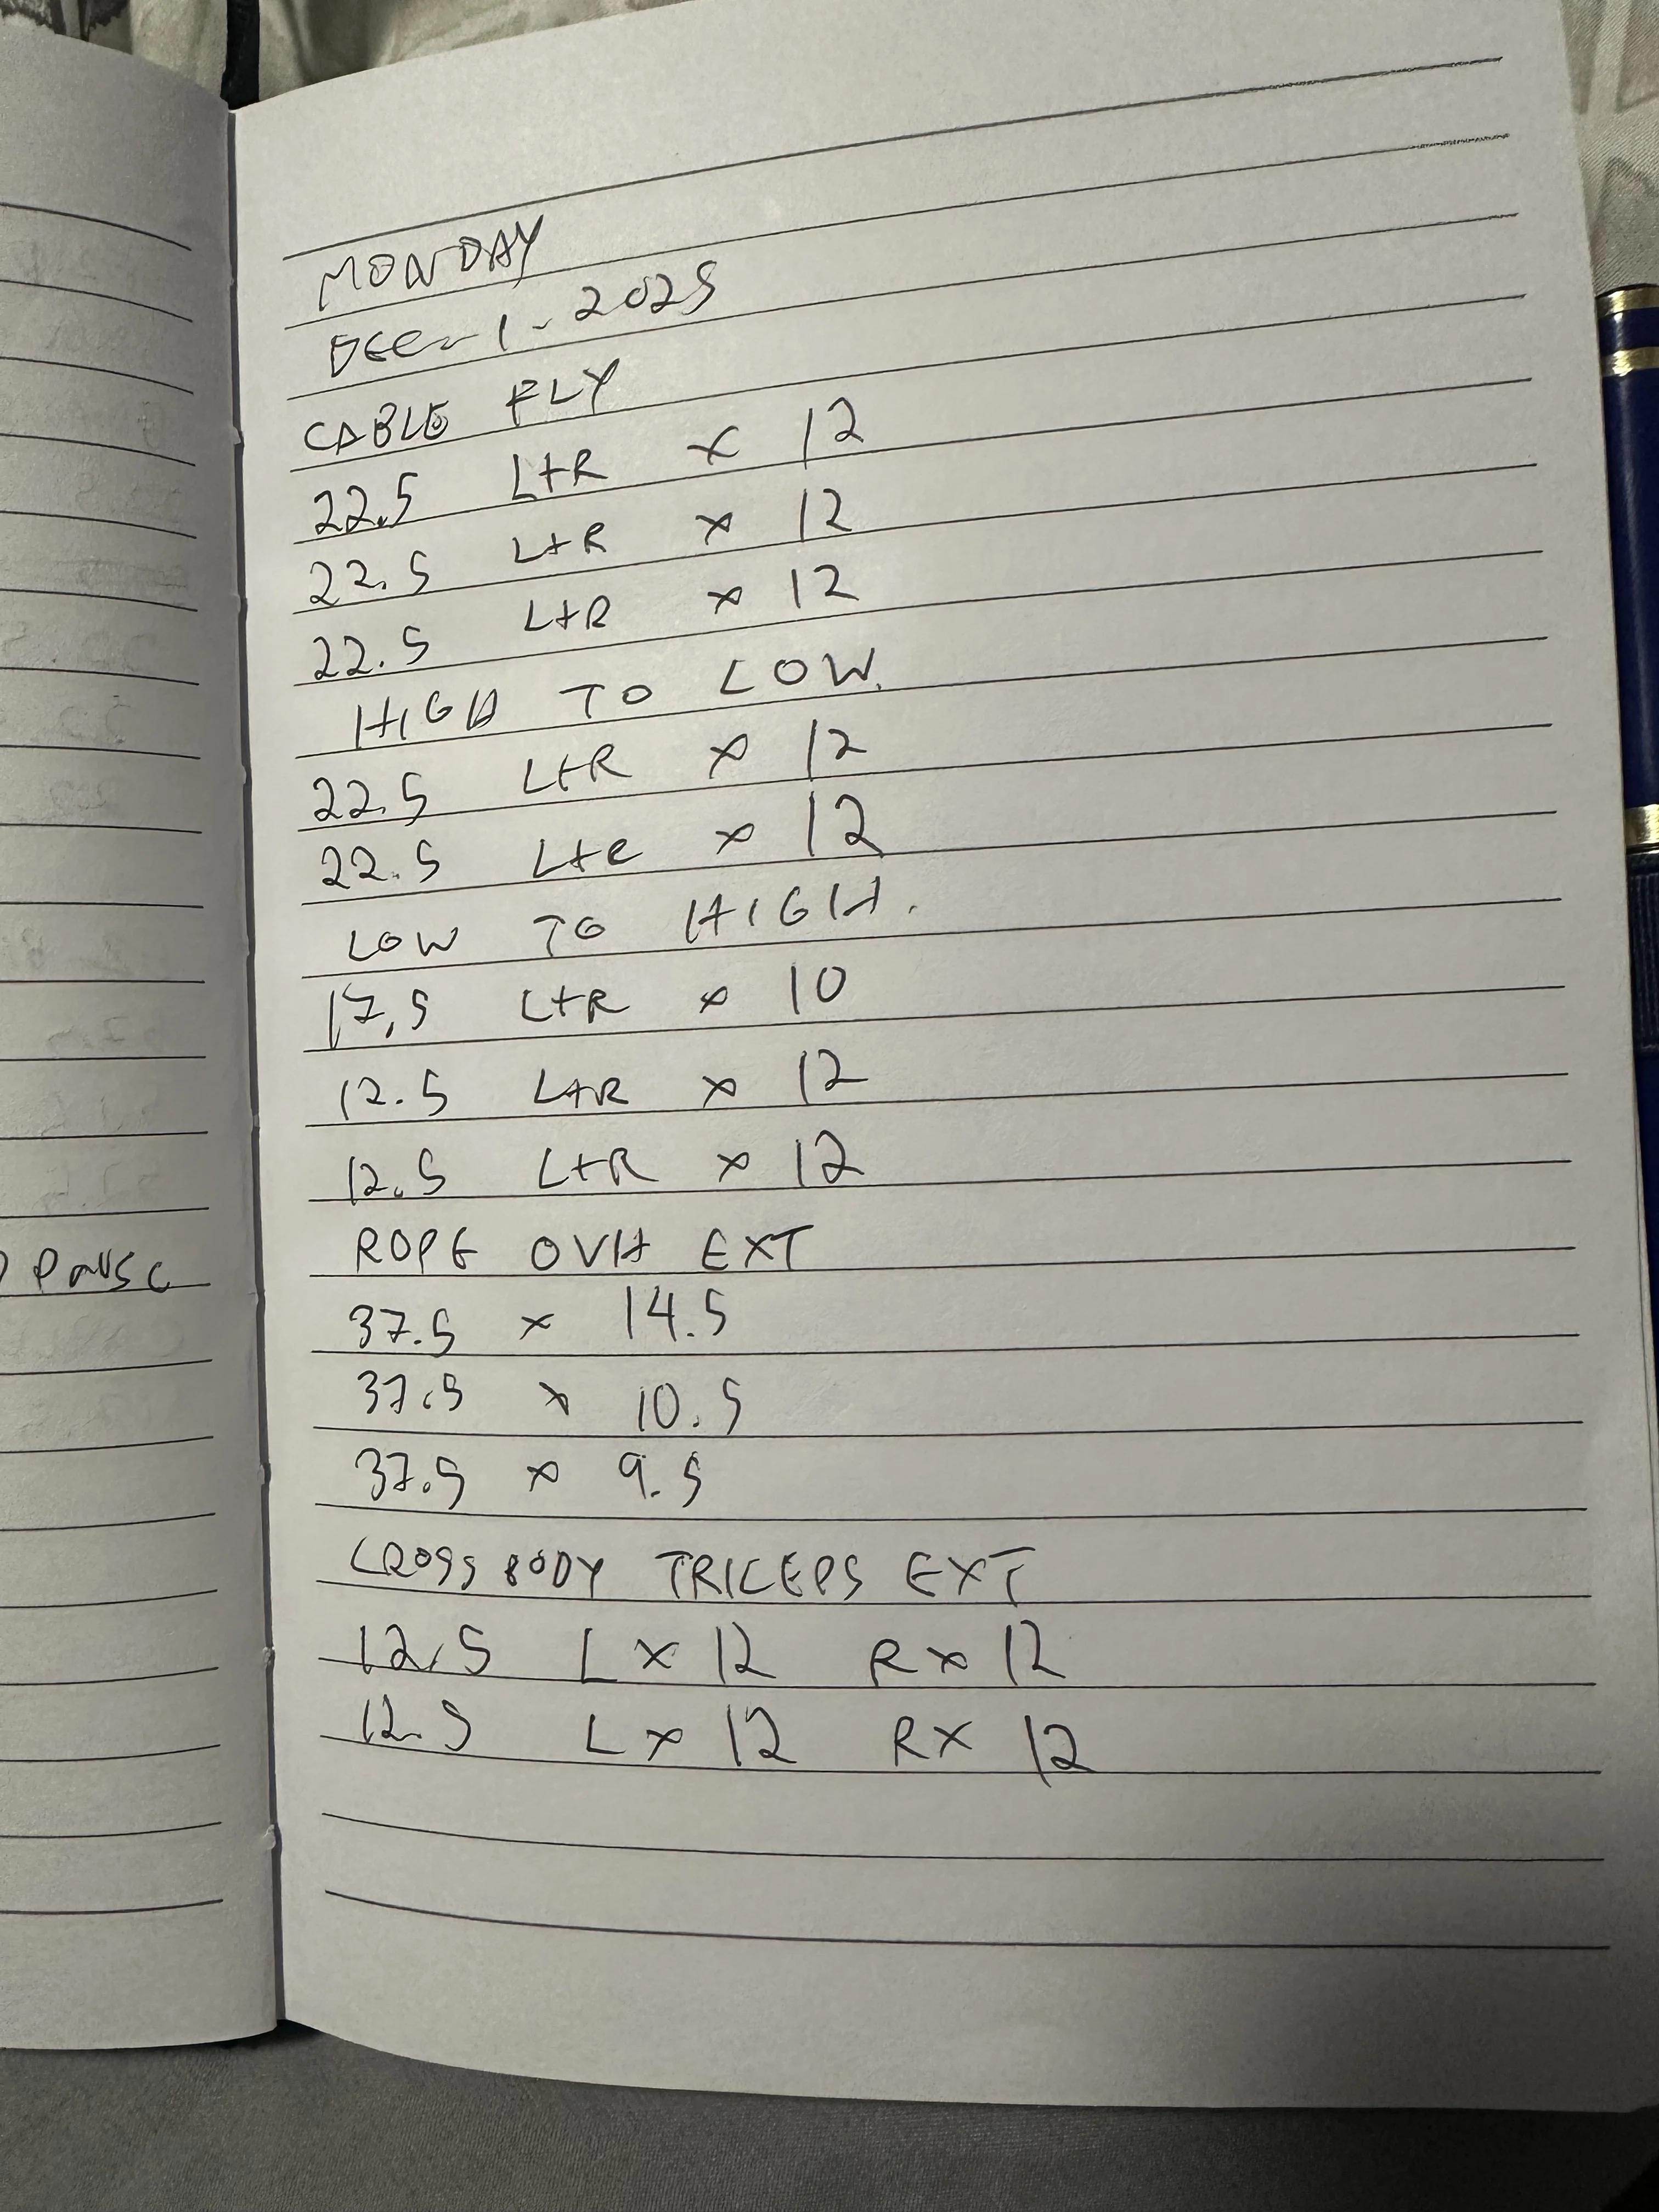 PAUSE
MONDAY
DEC - 1 - 2025
CABLE FLY
22.5 L+R x 12
22.5 L+R x 12
22.5 L+R x 12
HIGH TO LOW.
22.5 L+R x 12
22.5 L+R x 12
LOW TO HIGH.
17.5 L+R x 10
12.5 L+R x 12
12.5 L+R x 12
ROPE OVH EXT
37.5 x 14.5
37.5 x 10.5
37.5 x 9.5
CROSS BODY TRICEPS EXT
12.5 L x 12 R x 12
12.5 L x 12 R x 12